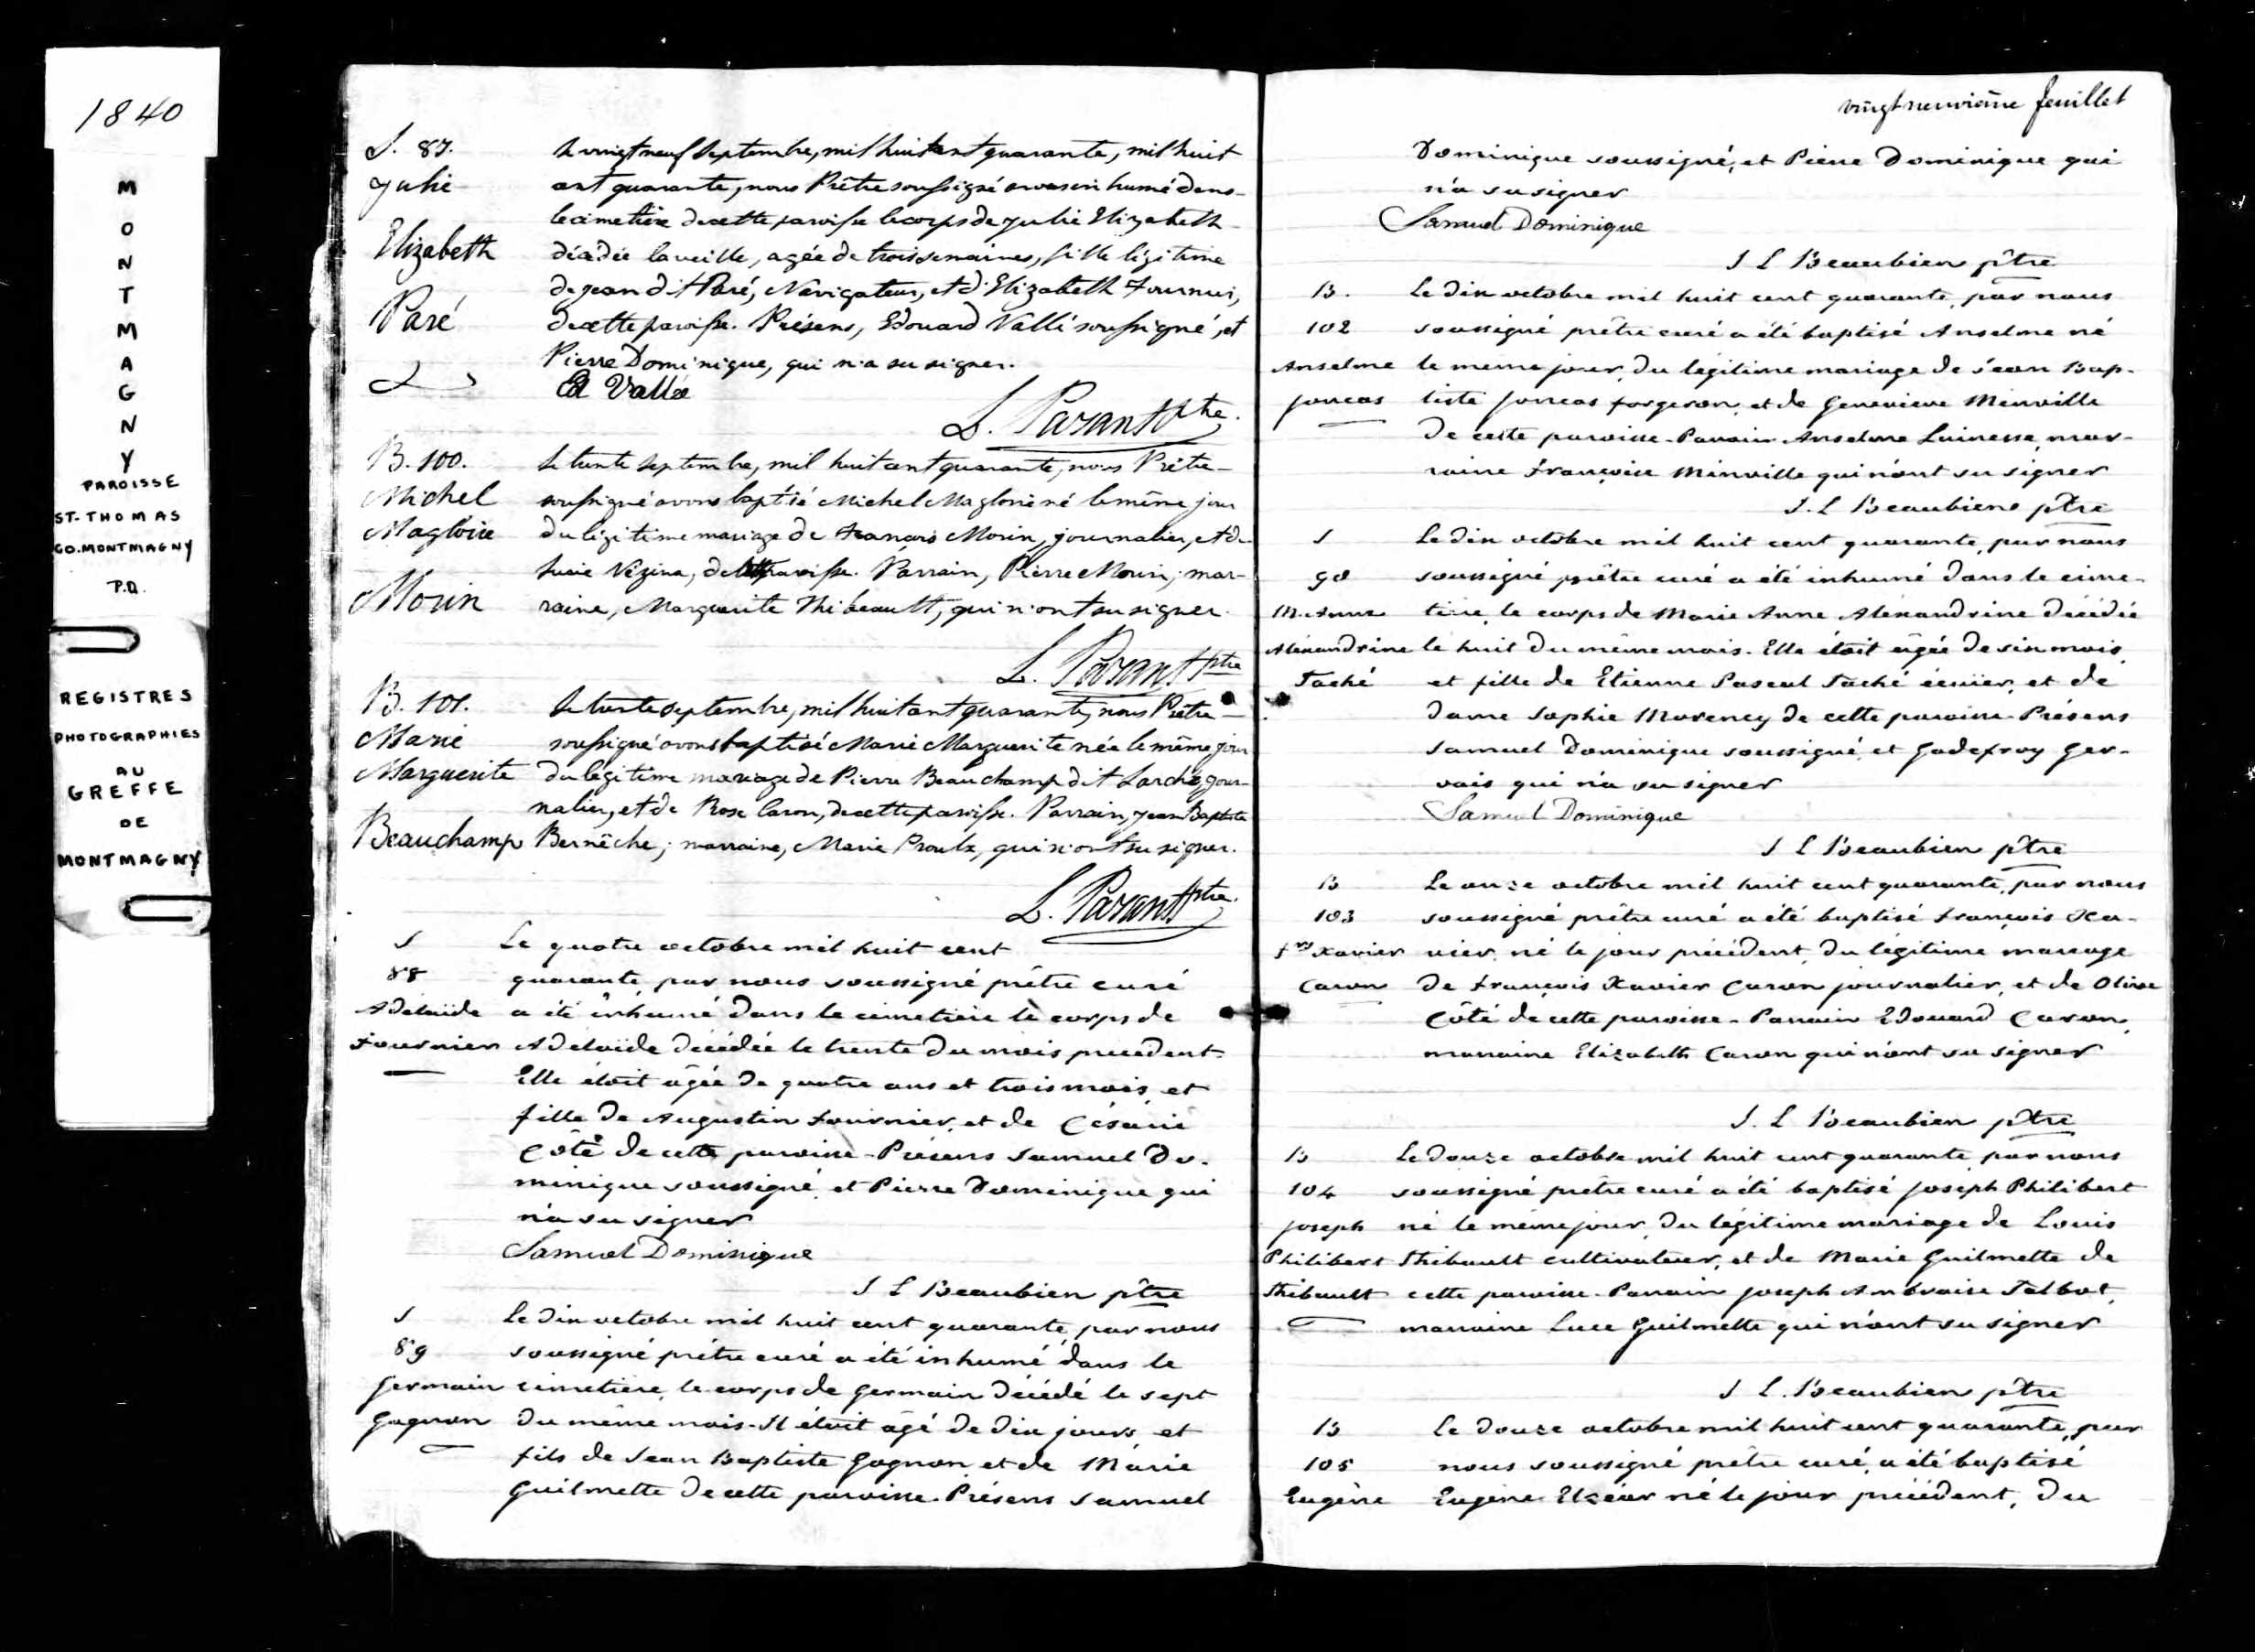 1840
MONTMAGNY
PAROISSE
ST-THOMAS
CO. MONTMAGNY
P.Q.
REGISTRES
PHOTOGRAPHIES
AU
GREFFE
DE
MONTMAGNY
S. 87.
Julie
Elizabeth
Paré
Le vingt neuf Septembre, mil huit cent quarante, mil huit
cent quarante, nous Prêtre soussigné avons inhumé dans
le cimetière de cette paroisse le corps de Julie Elizabeth
décédée la veille, agée de trois semaines, fille légitime
de Jean dit Paré, Navigateur, et d'Elizabeth Fournier,
de cette paroisse. Présens, Edouard Vallé soussigné, et
Pierre Dominique, qui n'a su signer.
Ed Vallée
L. Parant Ptre.
B. 100.
Michel
Magloire
Morin
Le trente Septembre, mil huit cent quarante, nous Prêtre
soussigné avons baptisé Michel Magloire né le même jour
du légitime mariage de François Morin, journalier, et de
Lucie Vézina, de cette paroisse. Parrain, Pierre Morin; mar-
raine, Marguerite Thibeault, qui n'ont su signer.
L. Parant Ptre
B. 101.
Marie
Marguerite
Beauchamp
Le trente septembre, mil huit cent quarante, nous Prêtre
soussigné avons baptisé Marie Marguerite née le même jour
du légitime mariage de Pierre Beauchamp dit Larche, jour-
nalier, et de Rose Caron, de cette paroisse. Parrain, Jean Baptiste
Bernèche; marraine, Marie Proulx, qui n'ont su signer.
L. Parant Ptre.
S
88
Adelaïde
Fournier
Le quatre octobre mil huit cent
quarante, par nous soussigné prêtre curé
a été inhumé dans le cimetière le corps de
Adelaïde décédée le trente du mois précédent.
Elle étoit agée de quatre ans et trois mois, et
fille de Augustin Fournier, et de Césarie
Côté de cette paroisse - Présens Samuel Do-
minique soussigné, et Pierre Dominique qui
n'a su signer
Samuel Dominique
J L Beaubien ptre
S
89
Germain
Gagnon
Le dix octobre mil huit cent quarante, par nous
soussigné prêtre curé a été inhumé dans le
cimetière, le corps de Germain décédé le sept
du même mois. Il étoit agé de dix jours, et
fils de Jean Baptiste Gagnon, et de Marie
Guilmette de cette paroisse. Présens Samuel
vingt neuvième feuillet
Dominique soussigné, et Pierre Dominique qui
n'a su signer
Samuel Dominique
J L Beaubien ptre
B.
102
Anselme
Joncas
Le dix octobre mil huit cent quarante, par nous
soussigné prêtre curé a été baptisé Anselme né
le meme jour, du légitime mariage de Jean Bap-
tiste Joncas forgeron, et de Genevieve Minville
de cette paroisse - Parrain Anselme mar-
raine Françoise Minville qui n'ont su signer
J. L Beaubien ptre
S
90
M. Anne
Alexandrine
Taché
Le dix octobre mil huit cent quarante, par nous
soussigné prêtre curé a été inhumé dans le cime-
tière, le corps de Marie Anne Alexandrine décédée
le huit du même mois. Elle étoit agée de six mois,
et fille de Etienne Pascal Taché écuïer, et de
dame Sophie Morency de cette paroisse. Présens
Samuel Dominique soussigné, et Godefroy Ger-
vais qui n'a su signer
Samuel Dominique
J L Beaubien ptre
B
103
Frs Xavier
Caron
Le onze octobre mil huit cent quarante, par nous
soussigné prêtre curé a été baptisé François Xa-
vier, né le jour précédent, du légitime mariage
de François Xavier Caron journalier, et de Olive
Côté de cette paroisse - Parrain Edouard Caron,
marraine Elizabeth Caron qui n'ont su signer
J. L Beaubien ptre
B
104
Joseph
Philibert
Thibault
Le douze octobre mil huit cent quarante, par nous
soussigné pretre curé a été baptisé Joseph Philibert
né le même jour, du légitime mariage de Louis
Thibault cultivateur, et de Marie Guilmette de
cette paroisse. Parrain Joseph Ambroise Talbot,
marraine Luce Guilmette qui n'ont su signer
J L. Beaubien ptre
B
105
Eugène
Le douze octobre mil huit cent quarante, par
nous soussigné prêtre curé, a été baptisé
Eugène Elzéar né le jour précédent, du